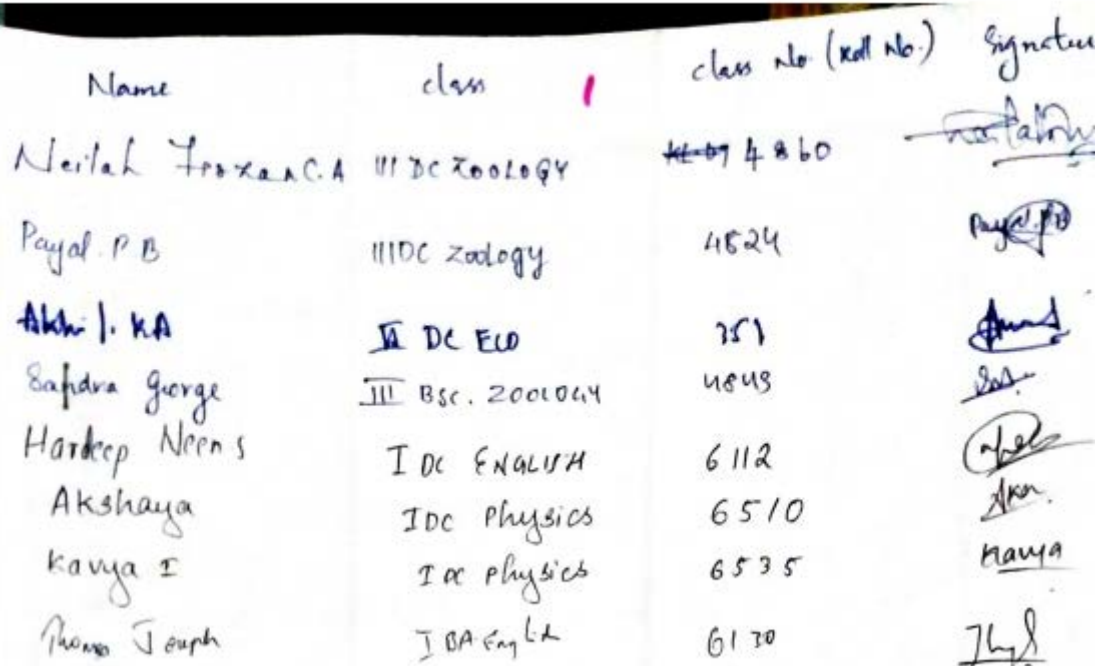 Name class class No. (Roll No.) Signature
Neilah Frozan C.A III DC ZOOLOGY 4860
Payal. P B III DC Zoology 4824 Payal. P B
Akhil. KA II DC ECO 351
Sandra George III BSc. ZOOLOGY 4849
Hardeep Neen S I DC ENGLISH 6112
Akshaya I DC Physics 6510 Aks.
Kavya I I DC Physics 6535 Kavya
Thomas Joseph I BA English 6130